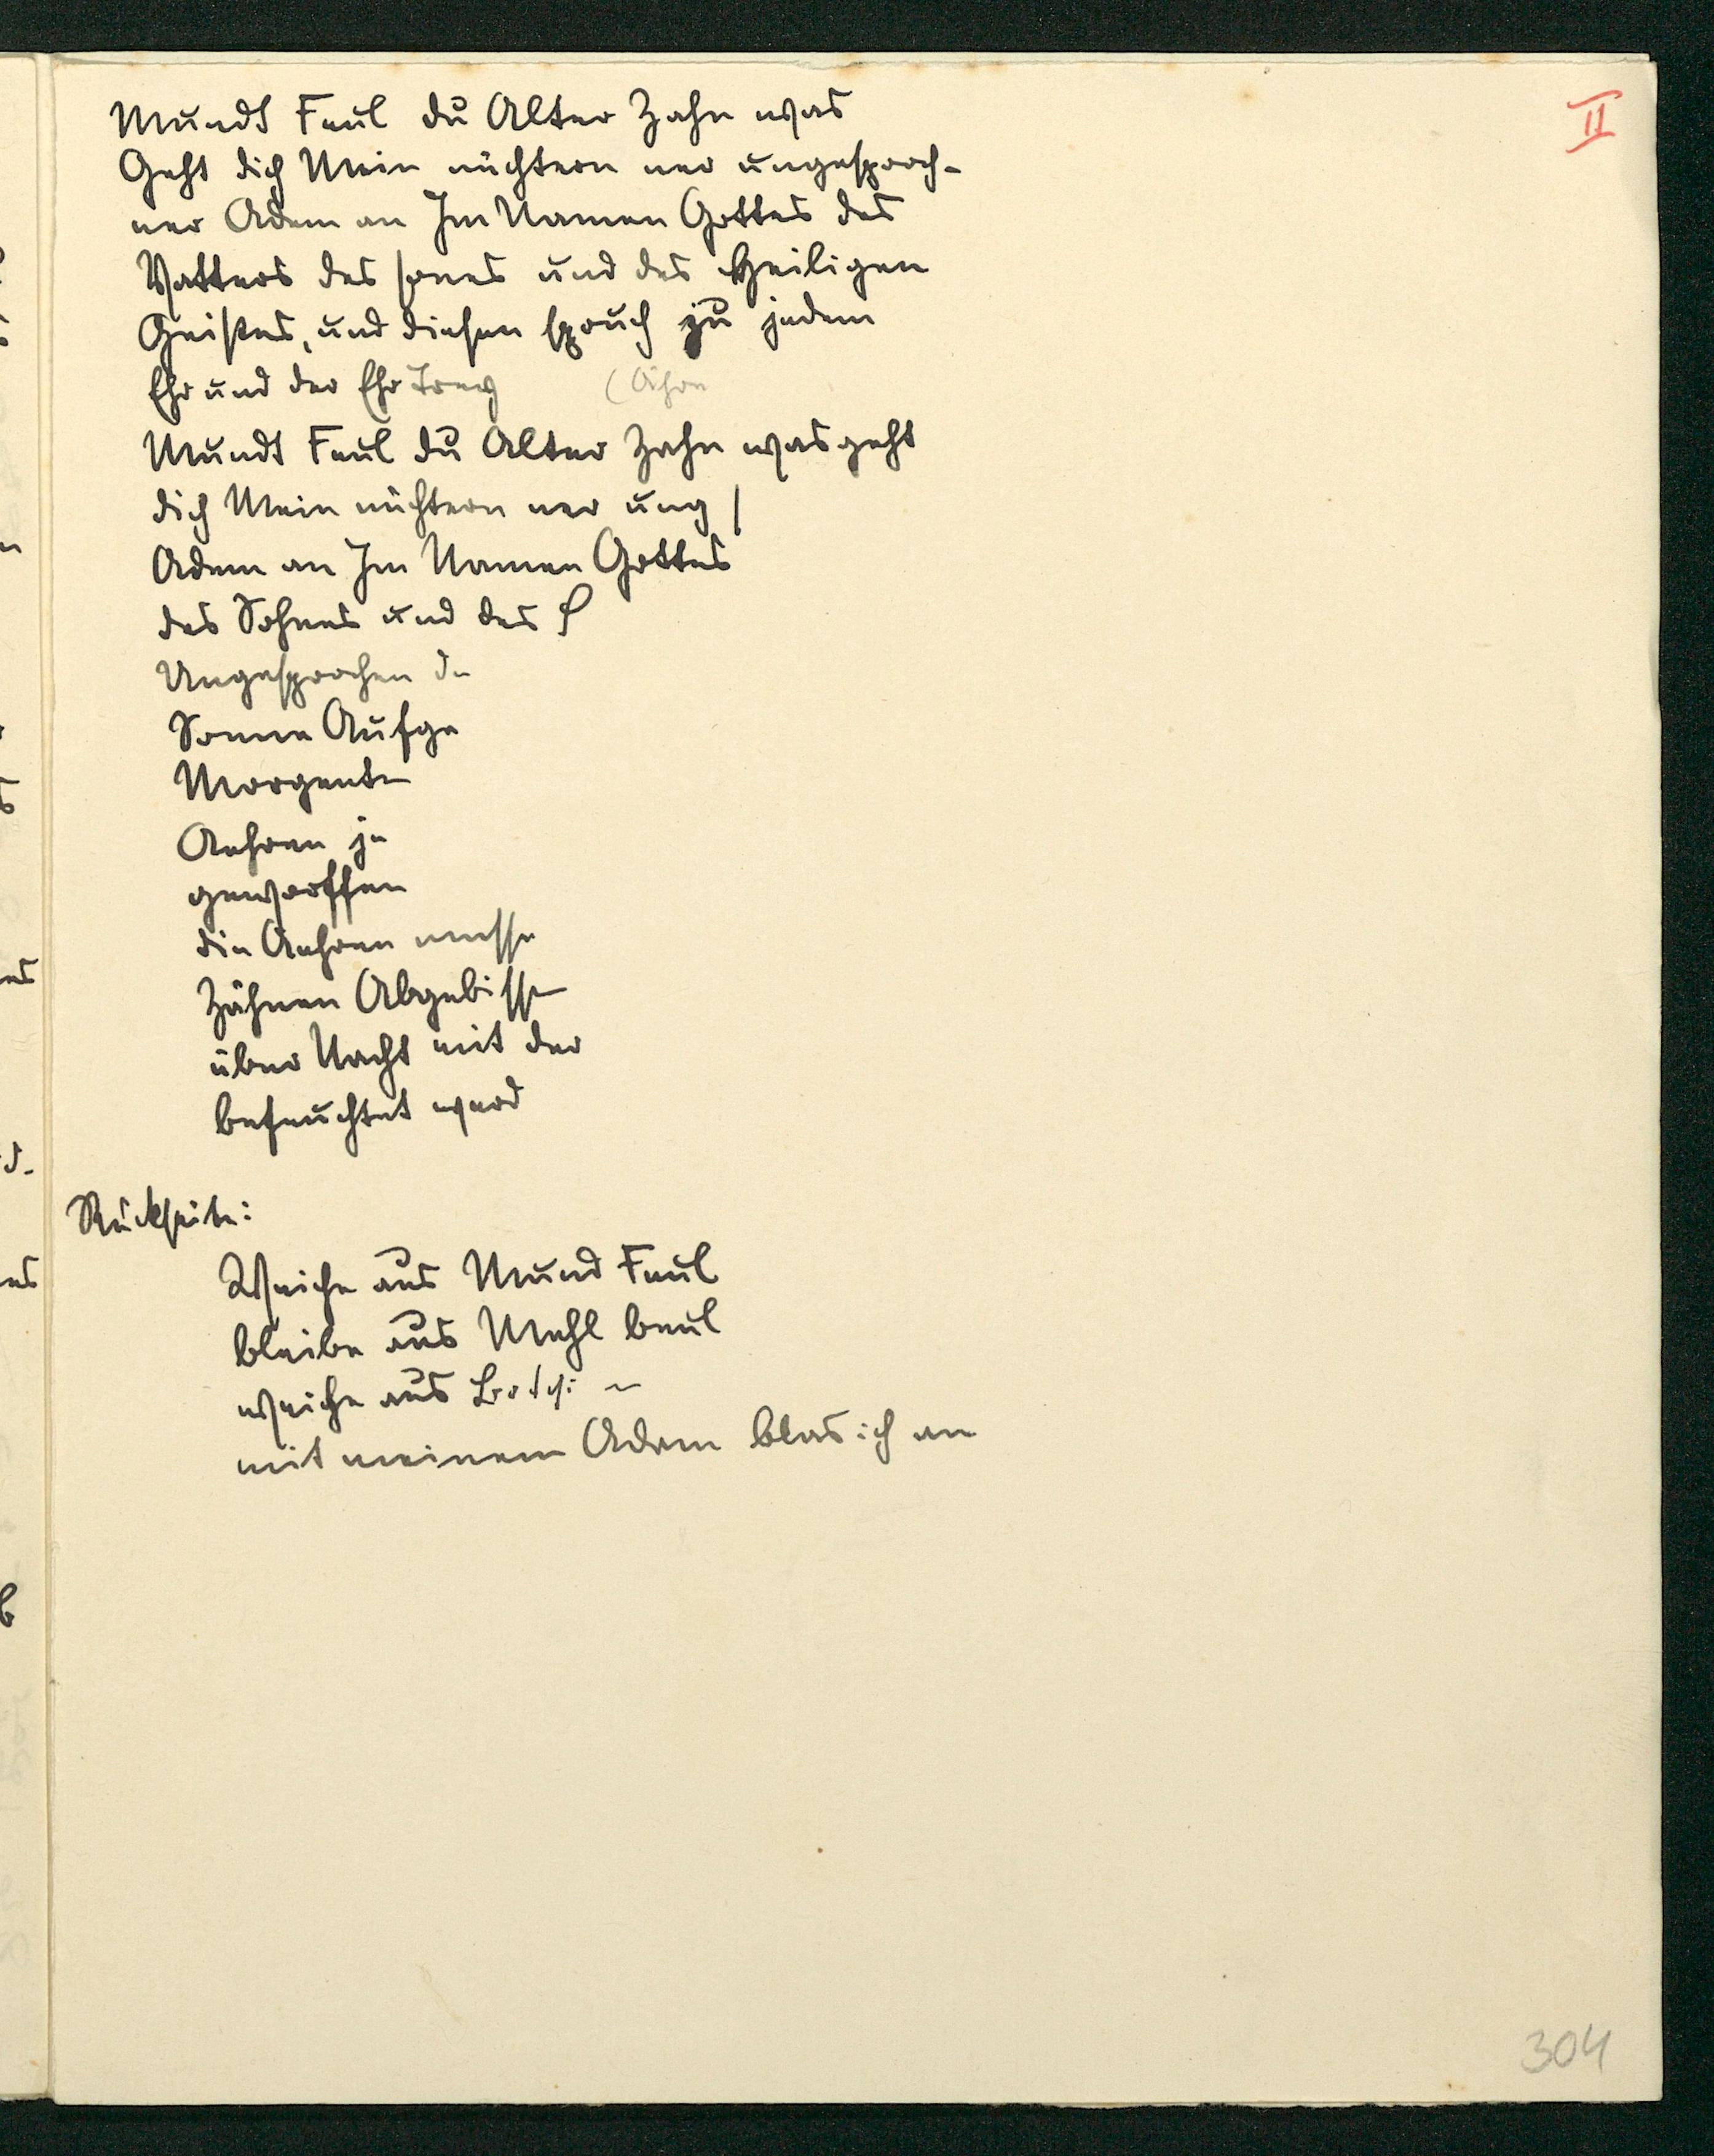 II
Mundt Feul du Alter Zahn was
Geht dich Mein nüchtern ner ungesproch-
ner Adem an Im Namen Gottes des
Vatters des sones und des Heiligen
Geistes, und diesen spruch zu jedem
Ehr und der Ehr (Ähre
Mundt Feul du Alter Zahn was geht
dich Mein nüchtern ner ung
Adem an Im Namen Gottes
des Sohnes und des
Ungesprochen de
Sonne Aufge
Morgents
Aehren je
geworffen
die Aehren messe
Zähnen Abgebisse
über Nacht mit der
befeuchtet werd
Rückseite:
Weiche aus Mund Feul
bleibe aus Mehl beul
weiche aus
mit meinem Adem blas ich an
304